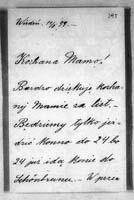 195
Wiedeń 19/4 99.—
Kochana Mamo!
Bardzo dziękuję kocha-
nej Mamie za list.—
Będziemy tylko jeź-
dzić konno do 24 bo
24 już idą konie do
Schönbrunnu.— W prze